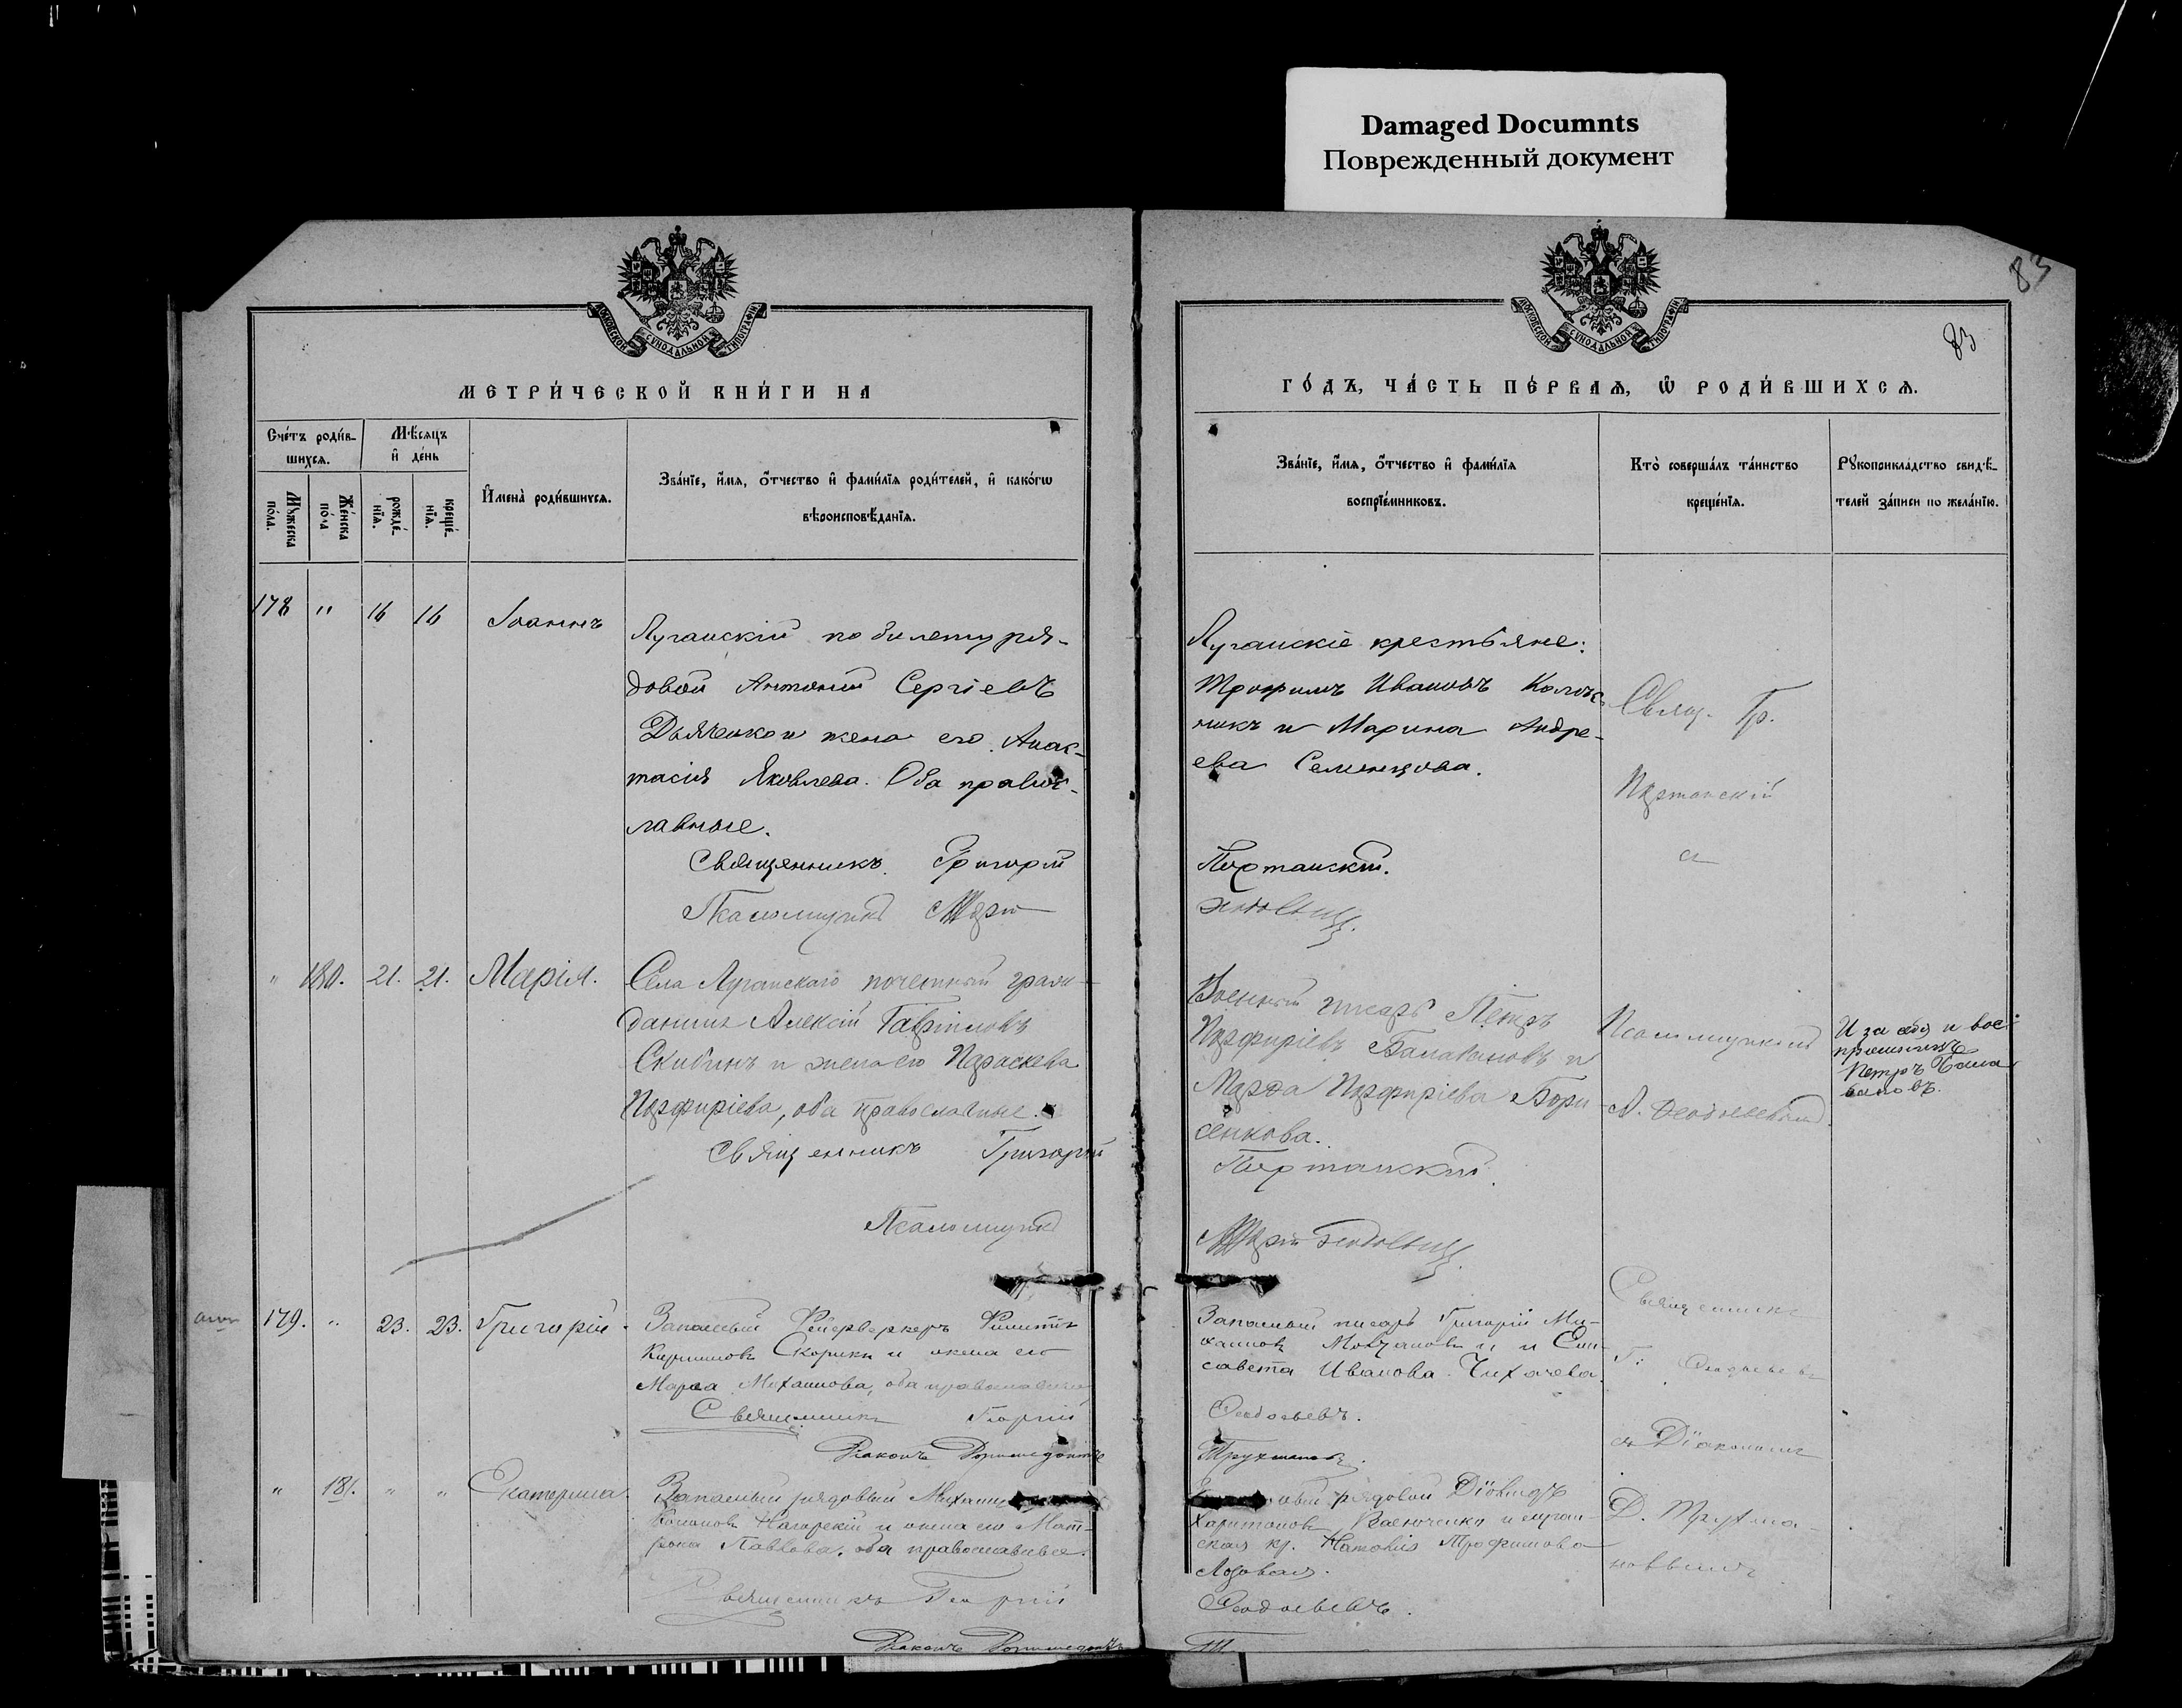 Damaged Documnts
Поврежденный документ
83
83
МОСКОВСКОЙ СѴНОДАЛЬНОЙ ТИПОГРАФІИ
МОСКОВСКОЙ СѴНОДАЛЬНОЙ ТИПОГРАФІИ
МЕТРИ́ЧЕСКОЙ КНИ́ГИ НА
ГО́ДЪ, ЧА́СТЬ ПЕ́РВАѦ, Ѡ҆ РОДИ́ВШИХСѦ.
Сче́тъ роди́в-
шихсѧ.
Мѣ́сѧцъ
и҆ де́нь
Мꙋ́жеска
по́ла.
Же́нска
по́ла
рожде́-
нїѧ.
креще́-
нїѧ.
И҆мена̀ роди́вшихсѧ.
Зва́нїе, и҆́мѧ, ѻ҆́тчество и҆ фами́лїѧ роди́телей, и҆ како́гѡ
вѣроисповѣ́данїѧ.
Зва́нїе, и҆́мѧ, ѻ҆́тчество и҆ фами́лїѧ
воспрїе́мниковъ.
Кто̀ соверша́лъ та́инство
креще́нїѧ.
Рꙋкоприкла́дство свидѣ́-
телей за́писи по жела́нїю.
178 " 16 16 Іоаннъ
Луганскій по билету ря-
довой Антоній Сергіевъ
Дьяченко и жена его Анас-
тасія Яковлева. Оба правос-
лавные.
Священникъ Григорій
Псаломщикъ
Луганскіе крестьяне:
Трофимъ Ивановъ Колес-
никъ и Марина Андре-
ева Семенцова.
Портанскій.
Свящ. Гр.
Портанскій
" 180. 21. 21. Марія.
Села Луганскаго почетный граж-
данинъ Алексій Гавріиловъ
Скибинъ и жена его Параскева
Порфиріева, оба православные.
Священникъ Григорій
Псаломщикъ
Военный писарь Петръ
Порфиріевъ Балабановъ и
Марфа Порфиріева Бори-
сенкова.
Портанскій.
Псаломщикомъ
И за себя и вос-
пріемникъ
Петръ Бала
бановъ.
179. " 23. 23. Григорій.
Запасный Фейерверкеръ Филиппъ
Кирилловъ Скорикъ и жена его
Марфа Михаилова, оба православные
Священникъ Георгій
Діаконъ
Запасный писарь Григорій Ми-
хаиловъ Молчановъ и Ели-
савета Иванова Чихачева.
Феодосьевъ.
Трухмановъ.
Священникъ
Г. Феодосьевъ
съ Діакономъ
" 181. " " Екатерина.
Запасный рядовый Михаилъ
Нагорскій и жена его Мат-
рона Павлова, оба православные.
Священникъ Георгій
Діаконъ
рядовой
Харитоновъ и луган-
ская кр. Наталія Трофимова
Лозовая.
Феодосьевъ.
Д. Трухма-
новымъ